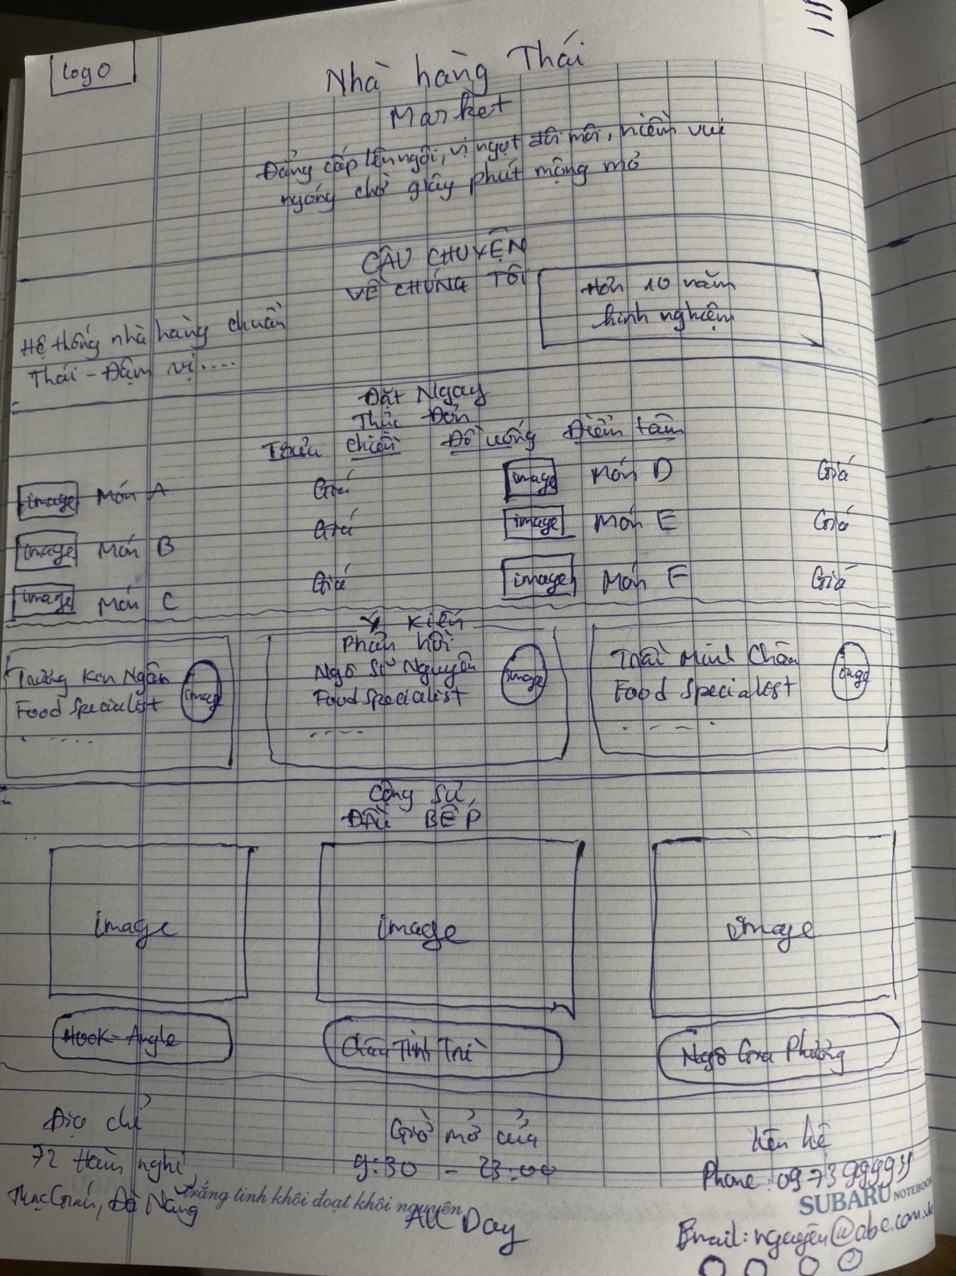 Logo
Nhà hàng Thái
Market
Đẳng cấp lên ngôi, vị ngọt đôi môi, niềm vui
ngóng chờ giây phút mộng mơ
CÂU CHUYỆN
VỀ CHÚNG TÔI
Hơn 10 năm
kinh nghiệm
Hệ thống nhà hàng chuẩn
Thái - Đậm vị....
Đặt Ngay
Thực Đơn
Đồ uống Điểm tâm
image Món A Giá image Món D Giá
image Món B Giá image Món E Giá
image Món C Giá image Món F Giá
Ý kiến
Phản hồi
Trương Kim Ngân
Food Specialist
image
.....
Ngô Sĩ Nguyên
Food Specialist
image
....
Trần Minh Châu
Food Specialist
image
. - - .
Cộng Sự
ĐẦU BẾP
image image image
Hook-Angle Châu Tinh Trì Ngô Gia Phương
Địa chỉ
72 Hàm nghi
Thạc Gián, Đà Nẵng
Giờ mở cửa
9:30 - 23:00
All Day
Liên hệ
Phone:
Email: nguyen@abc.com.vn
Trắng tinh khôi đoạt khôi nguyên
SUBARU NOTEBOOK